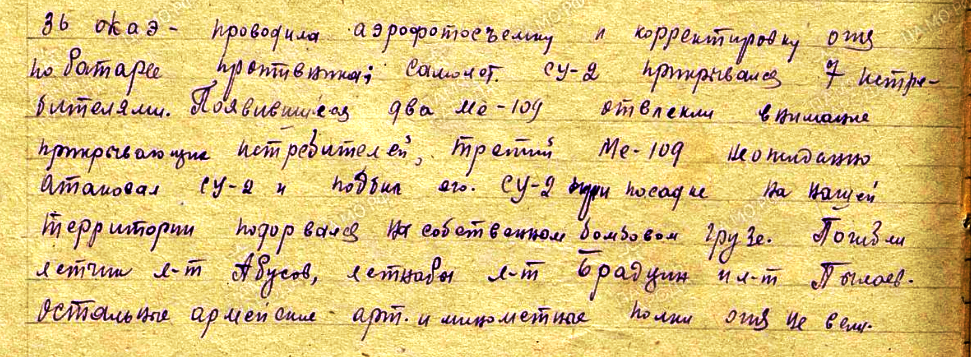 36 окаэ - проводила аэрофотосъемку и корректировку огня
по батарее противника; самолет СУ-2 прикрывался 7 истре-
бителями. Появившиеся два Ме-109 отвлекли внимание
прикрывающие истребителей, третий Ме-109 неожиданно
атаковал СУ-2 и подбил его. СУ-2 при посадке на нашей
территории подорвался на собственном бомбовом грузе. Погибли
летчик л-т Абусов, летнабы л-т Брадцин и л-т Пылаев.
Остальные армейские арт. и минометные полки огня не вели.